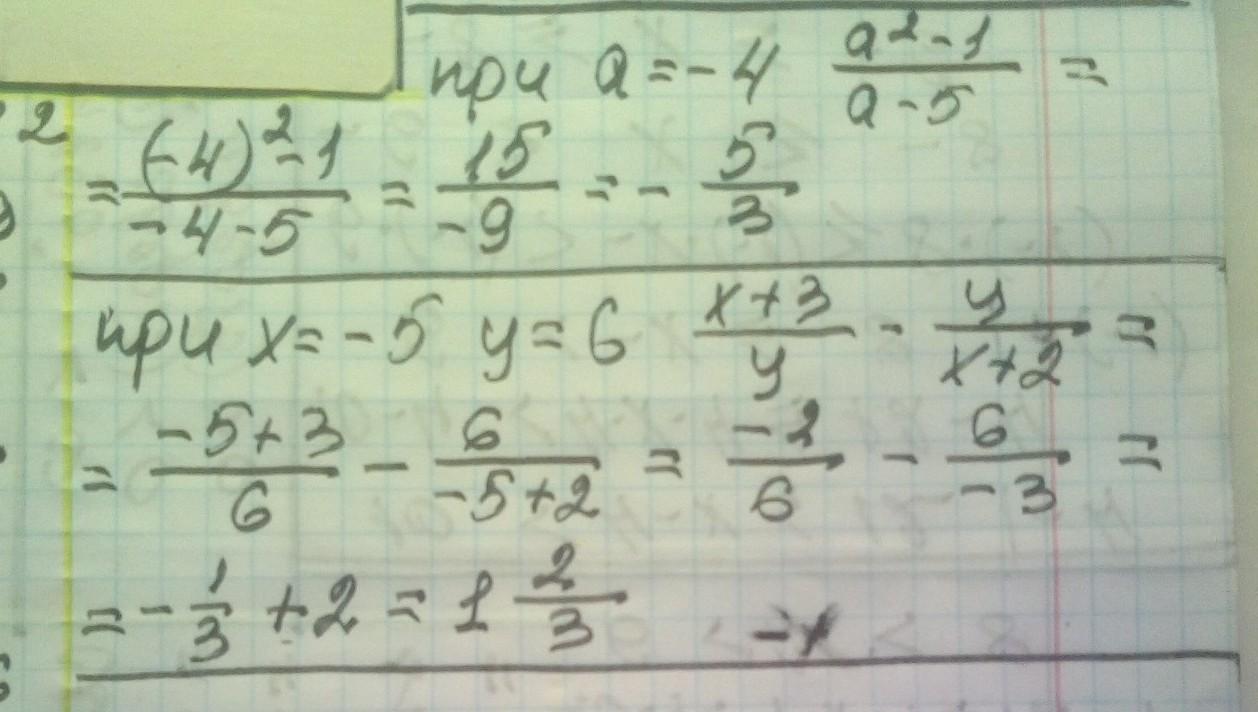 при a = -4 (a² - 1)/(a - 5) =
= ((-4)² - 1)/(-4 - 5) = 15/(-9) = - 5/3
при x = -5 y = 6 (x + 3)/y - y/(x + 2) =
= (-5 + 3)/6 - 6/(-5 + 2) = (-2)/6 - 6/(-3) =
= - 1/3 + 2 = 1 2/3